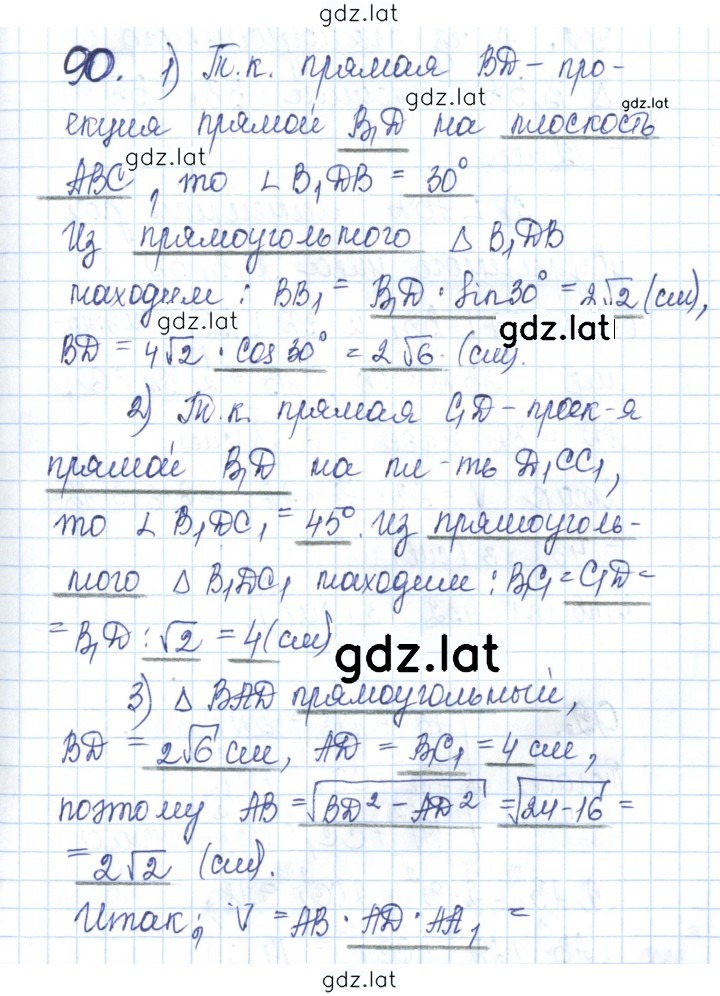 gdz.lat
90. 1) Т.к. прямая BD - про-
gdz.lat
gdz.lat
екция прямой B₁D на плоскость
gdz.lat
ABC, то ∠ B₁DB = 30°
Из прямоугольного △ B₁DB
находим: BB₁ = B₁D · sin30° = 2√2 (см),
gdz.lat
gdz.lat
BD = 4√2 · cos 30° = 2√6 (см).
2) Т.к. прямая C₁D - проек-я
прямой B₁D на пл-ть D₁CC₁,
то ∠ B₁DC₁ = 45°. Из прямоуголь-
ного △ B₁DC₁ находим: B₁C₁ = C₁D =
= B₁D : √2 = 4 (см)
gdz.lat
3) △ BAD прямоугольный,
BD = 2√6 см, AD = B₁C₁ = 4 см,
поэтому AB = √BD² - AD² = √24-16 =
= 2√2 (см).
Итак, V = AB · AD · AA₁ =
gdz.lat